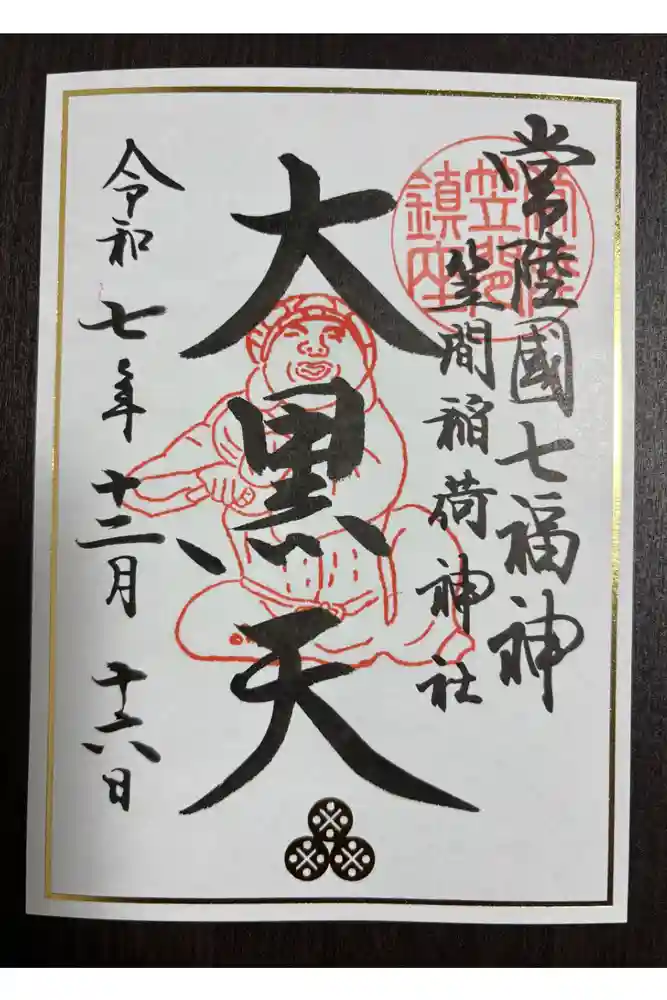 常陸國七福神
笠間稲荷神社
大黒天
令和七年十二月十六日
常陸
笠間
鎮座